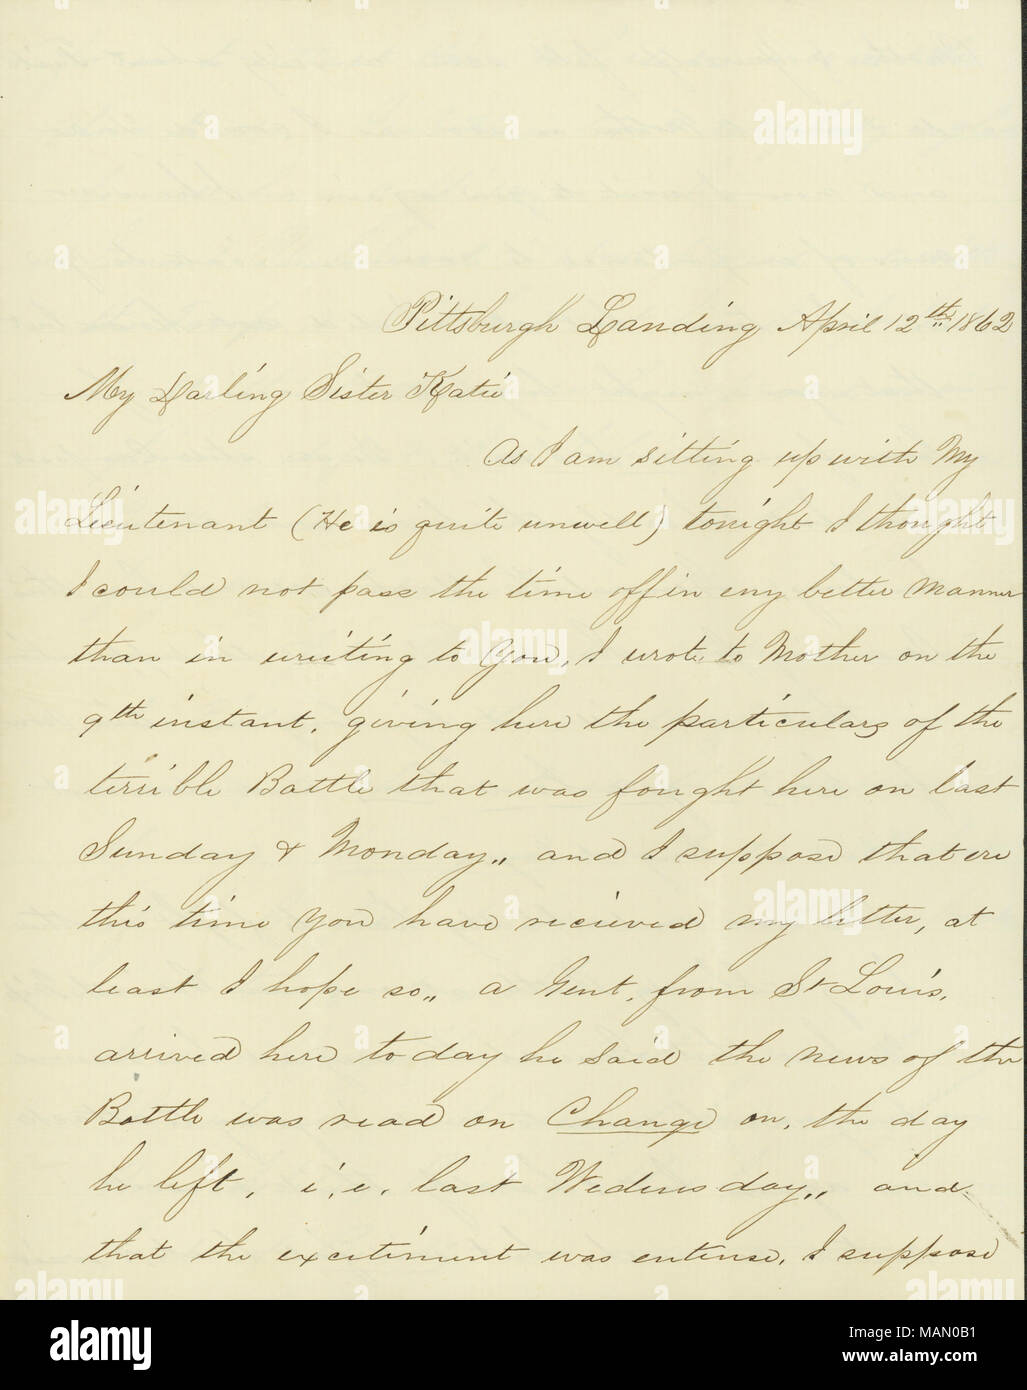 Pittsburgh Landing April 12th 1862
My Darling Sister Katie
As I am sitting up with My
Lieutenant (He is quite unwell) tonight I thought
I could not pass the time off in eny better manner
than in writing to You, I wrote to Mother on the
9th instant, giving here the particulars of the
terrible Battle that was fought here on last
Sunday & Monday,, and I suppose that ere
this time You have recieved my letter, at
least I hope so,, a Gent, from St Louis,
arrived here to day he said the news of the
Battle was read on Change on, the day
he left, i,e, last Wedensday,, and
that the excitiment was entense, I suppose
alamy
Image ID: MAN0B1
www.alamy.com